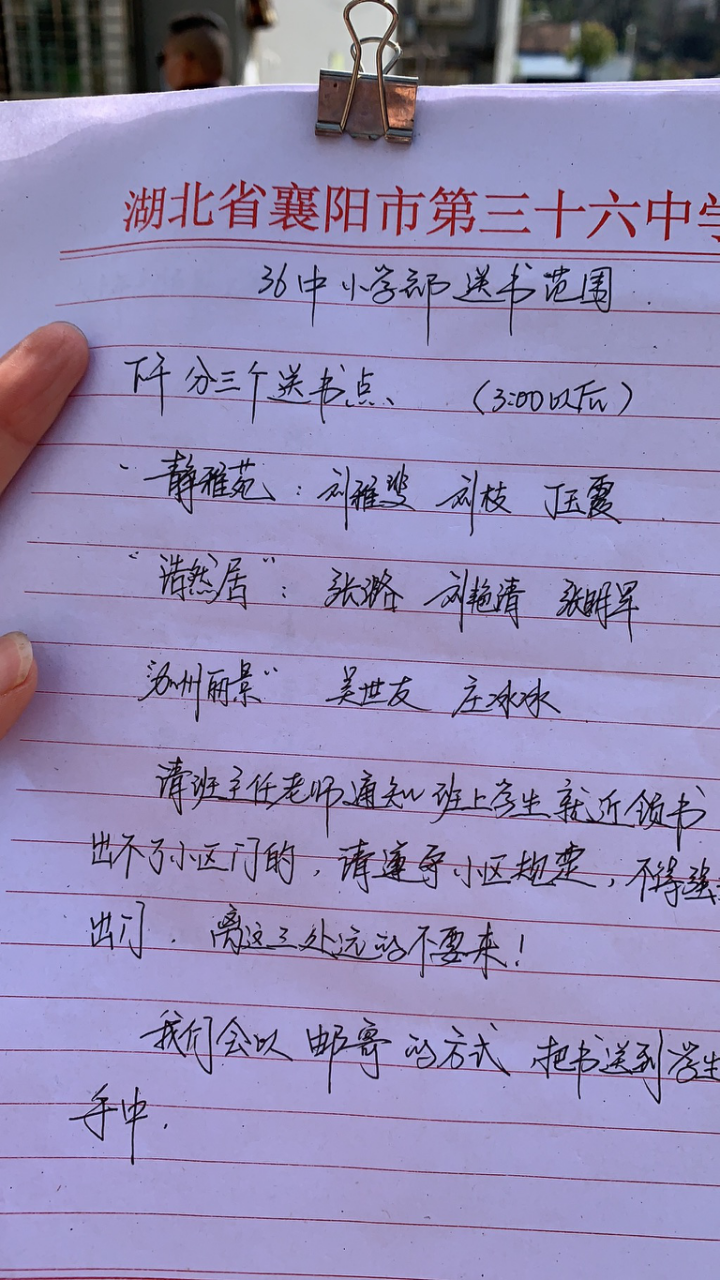 湖北省襄阳市第三十六中学
36中小学部送书范围
下午分三个送书点、 (3:00以后)
"静雅苑: 刘雅斐 刘枝 丁玉霞
"浩然居": 张潞 刘艳清 张明军
"苏州丽景" 吴世友 庄冰冰
请班主任老师通知班上学生就近领书
出不了小区门的,请遵守小区规定,不得强
出门. 离这三处远的不要来!
我们会以邮寄的方式 把书送到学生
手中.